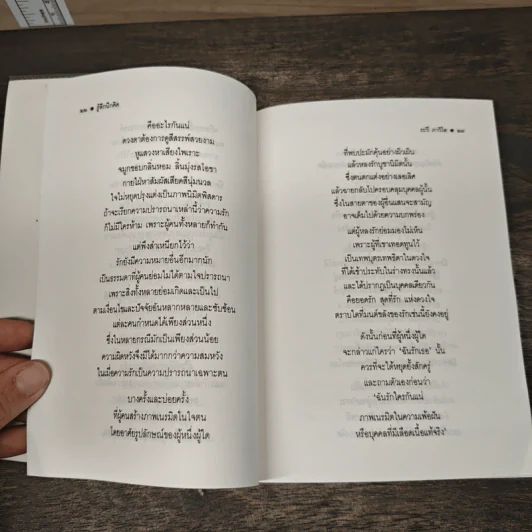 ๒๒ ● รู้สึกนึกคิด
คืออะไรกันแน่
ดวงตาต้องการดูสีสรรพ์สวยงาม
หูแสวงหาเสียงไพเราะ
จมูกชอบกลิ่นหอม ลิ้นมุ่งรสโอชา
กายใฝ่หาสัมผัสเสียดสีนุ่มนวล
ใจไม่หยุดปรุงแต่งเป็นภาพนิมิตพิสดาร
ถ้าจะเรียกความปรารถนาเหล่านี้ว่าความรัก
ก็ไม่มีใครห้าม เพราะผู้คนทั้งหลายก็ทำกัน
แต่พึงสำเหนียกไว้ว่า
รักยังมีความหมายอื่นอีกมากนัก
เป็นธรรมดาที่ผู้คนย่อมไม่ได้ตามใจปรารถนา
เพราะสิ่งทั้งหลายย่อมเกิดและเป็นไป
ตามเงื่อนไขและปัจจัยอันหลากหลายและซับซ้อน
แต่ละคนกำหนดได้เพียงส่วนหนึ่ง
ซึ่งในหลายกรณีมักเป็นเพียงส่วนน้อย
ความผิดหวังจึงมีได้มากกว่าความสมหวัง
ในเมื่อความรักเป็นความปรารถนาเฉพาะตน
บางครั้งและบ่อยครั้ง
ที่ผู้คนสร้างภาพเนรมิตในใจตน
โดยอาศัยรูปลักษณ์ของผู้หนึ่งผู้ใด
ระวี ภาวิไล ● ๒๓
ที่พบปะมักคุ้นอย่างผิวเผิน
แล้วหลงรักบูชานิมิตนั้น
ซึ่งตนตกแต่งอย่างเลอเลิศ
แล้วฉายกลับไปครอบคลุมบุคคลผู้นั้น
ซึ่งในสายตาของผู้อื่นแสนจะสามัญ
อาจเต็มไปด้วยความบกพร่อง
แต่ผู้หลงรักย่อมมองไม่เห็น
เพราะผู้ที่เขาเทอดทูนไว้
เป็นเทพบุตรเทพธิดาในดวงใจ
ที่ได้เข้าประทับในร่างทรงนั้นแล้ว
และได้ปรากฏเป็นบุคคลเดียวกัน
คือยอดรัก สุดที่รัก แห่งดวงใจ
ตราบใดที่มนต์ขลังของรักเช่นนี้ยังคงอยู่
ดังนั้นก่อนที่ผู้หนึ่งผู้ใด
จะกล่าวแก่ใครว่า 'ฉันรักเธอ' นั้น
ควรที่จะได้หยุดยั้งสักครู่
และถามตัวเองก่อนว่า
'ฉันรักใครกันแน่
ภาพเนรมิตในความเพ้อฝัน
หรือบุคคลที่มีเลือดเนื้อแท้จริง'